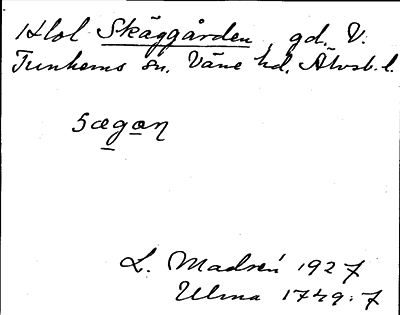 Hol Skäggården, gd. V.
Tunhems sn. Väne hd. Älvsb. l.
sægæn
L. Madsén 1927
Ulma 1749:7